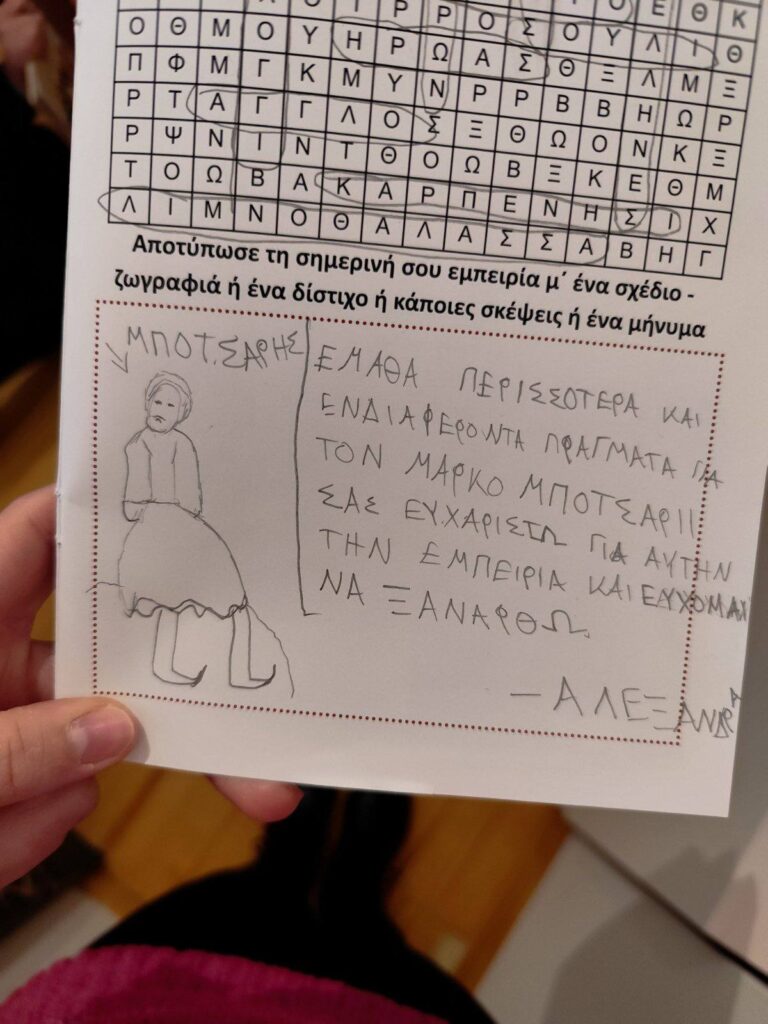 Ο Ε Θ Κ
Ρ Ρ Ο Σ Ο Υ Λ Ι Θ
Ο Θ Μ Ο Υ Η Ρ Ω Α Σ Θ Ξ Λ Μ Ξ
Π Φ Μ Γ Κ Μ Υ Ν Ρ Ρ Β Β Η Ω Ρ
Ρ Τ Α Γ Γ Λ Ο Σ Ξ Θ Ω Ο Ν Κ Ξ
Ρ Ψ Ν Ι Ν Τ Θ Ο Ω Β Ξ Κ Ε Θ Μ
Τ Ο Ω Β Α Κ Α Ρ Π Ε Ν Η Σ Ι Χ
Λ Ι Μ Ν Ο Θ Α Λ Α Σ Σ Α Β Η Γ
Αποτύπωσε τη σημερινή σου εμπειρία μ΄ ένα σχέδιο -
ζωγραφιά ή ένα δίστιχο ή κάποιες σκέψεις ή ένα μήνυμα
ΜΠΟΤΣΑΡΗΣ
ΕΜΑΘΑ ΠΕΡΙΣΣΟΤΕΡΑ ΚΑΙ
ΕΝΔΙΑΦΕΡΟΝΤΑ ΠΡΑΓΜΑΤΑ ΓΙΑ
ΤΟΝ ΜΑΡΚΟ ΜΠΟΤΣΑΡΗ
ΣΑΣ ΕΥΧΑΡΙΣΤΩ ΓΙΑ ΑΥΤΗΝ
ΤΗΝ ΕΜΠΕΙΡΙΑ ΚΑΙ ΕΥΧΟΜΑΙ
ΝΑ ΞΑΝΑΡΘΩ.
- ΑΛΕΞΑΝΔΡΑ